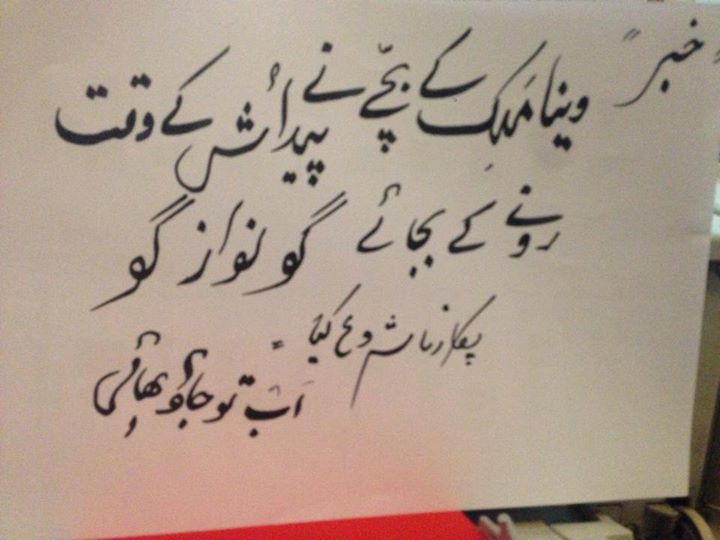 "خبر"
وینا ملک کے بچّے نے پیدائش کے وقت
رونے کے بجائے گو نواز گو
پکارنا شروع کیا =
اَب تو جاؤ بھائی